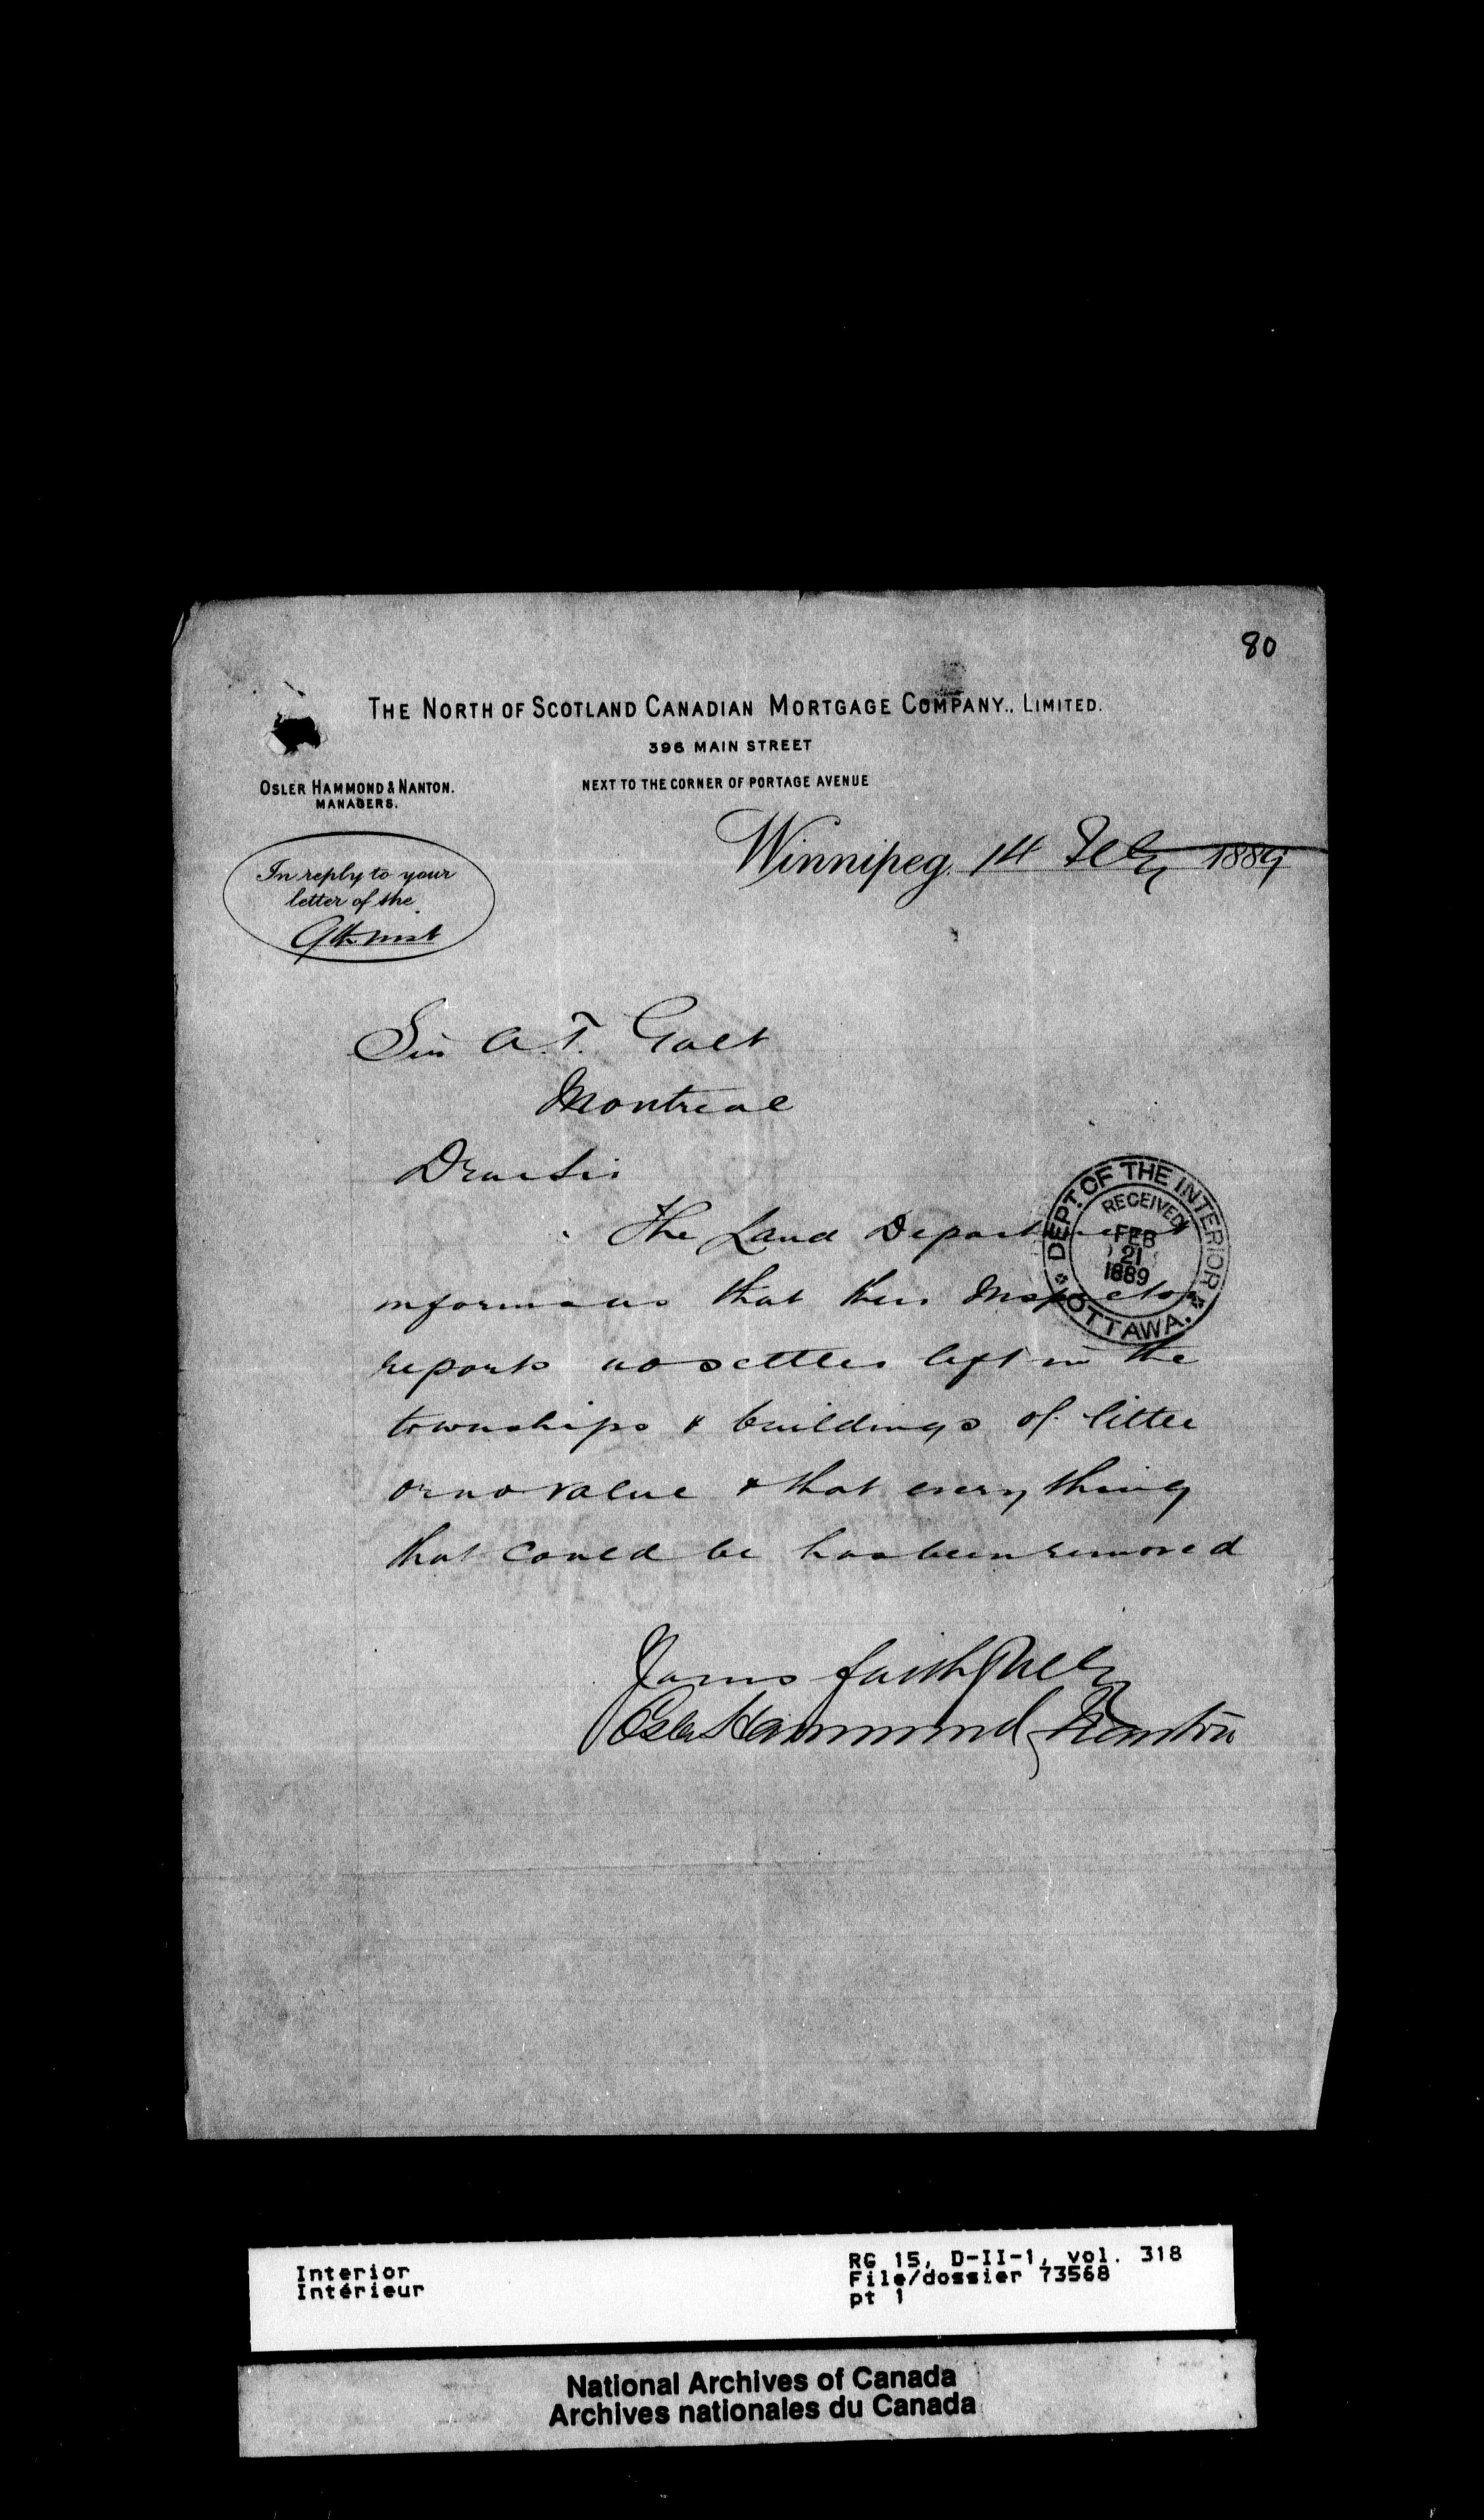 80
THE NORTH OF SCOTLAND CANADIAN MORTGAGE COMPANY., LIMITED.
396 MAIN STREET
NEXT TO THE CORNER OF PORTAGE AVENUE
OSLER HAMMOND & NANTON.
MANAGERS.
Winnipeg. 14 Feby 1889
In reply to your
letter of the
9th inst
Sir A. T. Galt
Montreal
Dear Sir
The Land Department
informs us that their Inspector
reports no settlers left in the
townships & buildings of little
or no value & that everything
that could be has been removed
Yours faithfully
Osler Hammond & Nanton
DEPT. OF THE INTERIOR
RECEIVED
FEB
21
1889
OTTAWA.
Interior
Intérieur
RG 15, D-II-1, vol. 318
File/dossier 73568
pt 1
National Archives of Canada
Archives nationales du Canada